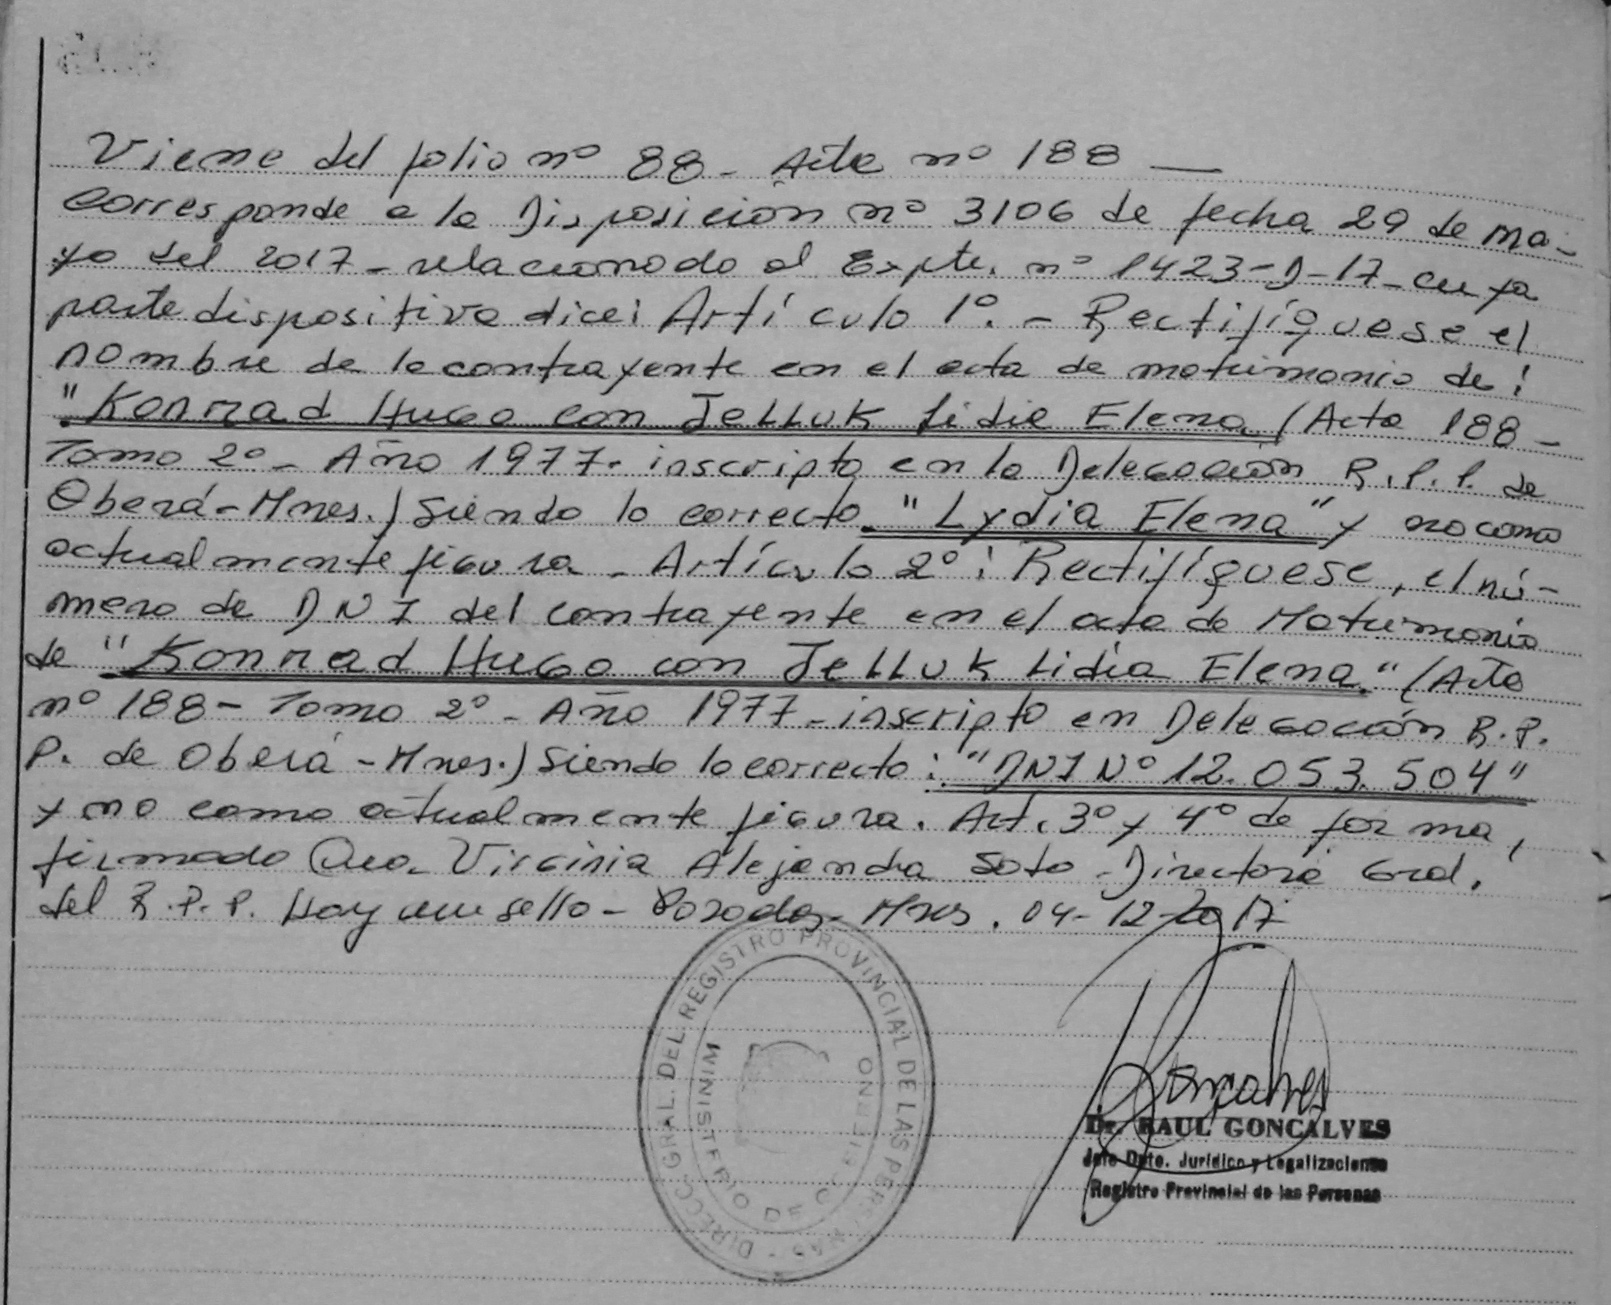 Viene del folio nº 88 - Acta nº 188 —
Corresponde a la Disposición nº 3106 de fecha 29 de ma-
yo del 2017 - relacionado al Expte. nº 1423-D-17 - cuya
parte dispositiva dice: Artículo 1º. - Rectifíquese el
nombre de la contrayente en el acta de matrimonio de:
"Konrad Hugo con Jelluk Lidia Elena (Acta 188 -
Tomo 2º - Año 1977- inscripto en la Delegación R.P.P. de
Oberá - Mnes.) Siendo lo correcto "Lydia Elena" y no como
actualmente figura - Artículo 2º: Rectifíquese, el nú-
mero de DNI del contrayente en el acta de Matrimonio
de "Konrad Hugo con Jelluk Lidia Elena" (Acta
nº 188 - Tomo 2º - Año 1977 - inscripto en Delegación R.P.
P. de Oberá - Mnes.) Siendo lo correcto: "DNI Nº 12.053.504"
y no como actualmente figura. Art. 3º y 4º de forma,
firmado Virginia Alejandra Soto - Directora Gral.
del R.P.P. Hay un sello - Posadas - Mnes. 04-12-2017
DIRECC. GRAL. DEL REGISTRO PROVINCIAL DE LAS PERSONAS
MINISTERIO DE GOBIERNO
Goncalves
Dr. RAUL GONCALVES
Jefe Dpto. Jurídico y Legalizaciones
Registro Provincial de las Personas